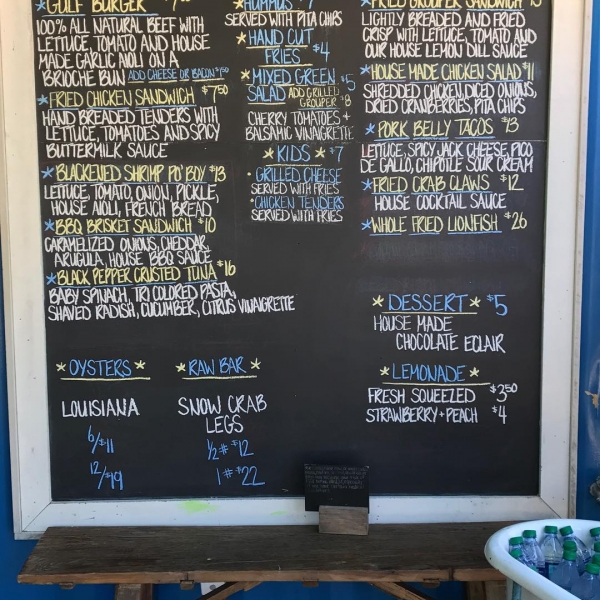 *GULF BURGER
100% ALL NATURAL BEEF WITH
LETTUCE, TOMATO AND HOUSE
MADE GARLIC AIOLI ON A
BRIOCHE BUN ADD CHEESE OR BACON $1.50
*FRIED CHICKEN SANDWICH $7.50
HAND BREADED TENDERS WITH
LETTUCE, TOMATOES AND SPICY
BUTTERMILK SAUCE
*BLACKENED SHRIMP PO'BOY $13
LETTUCE, TOMATO, ONION, PICKLE,
HOUSE AIOLI, FRENCH BREAD
*BBQ BRISKET SANDWICH $10
CARAMELIZED ONIONS, CHEDDAR,
ARUGULA, HOUSE BBQ SAUCE
*BLACK PEPPER CRUSTED TUNA $16
BABY SPINACH, TRI COLORED PASTA,
SHAVED RADISH, CUCUMBER, CITRUS VINAIGRETTE
*OYSTERS*
LOUISIANA
6/$11
12/$19
*RAW BAR*
SNOW CRAB
LEGS
1/2# $12
1# $22
*HUMMUS
SERVED WITH PITA CHIPS
*HAND CUT
FRIES $4
*MIXED GREEN $5
SALAD ADD GRILLED
GROUPER $8
CHERRY TOMATOES +
BALSAMIC VINAIGRETTE
*KIDS* $7
• GRILLED CHEESE
SERVED WITH FRIES
• CHICKEN TENDERS
SERVED WITH FRIES
*FRIED GROUPER SANDWICH
LIGHTLY BREADED AND FRIED
CRISP WITH LETTUCE, TOMATO AND
OUR HOUSE LEMON DILL SAUCE
*HOUSE MADE CHICKEN SALAD $11
SHREDDED CHICKEN, DICED ONIONS,
DRIED CRANBERRIES, PITA CHIPS
*PORK BELLY TACOS $13
LETTUCE, SPICY JACK CHEESE, PICO
DE GALLO, CHIPOTLE SOUR CREAM
*FRIED CRAB CLAWS $12
HOUSE COCKTAIL SAUCE
*WHOLE FRIED LIONFISH $26
*DESSERT* $5
HOUSE MADE
CHOCOLATE ECLAIR
*LEMONADE*
FRESH SQUEEZED $3.50
STRAWBERRY + PEACH $4